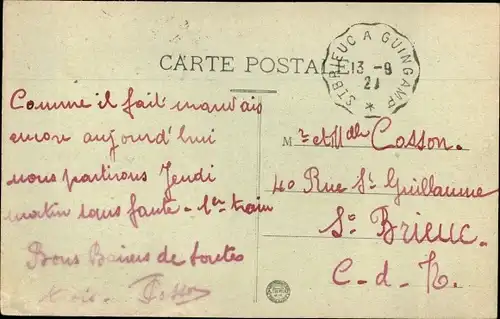 CARTE POSTALE
ST BRIEUC A GUINGAMP
13 - 9
21
Comme il fait mauvais
encore aujourd'hui
nous partirons Jeudi
matin sans faute - 1er train
Bons Baisers de toutes
trois.
Mr et Mdlle Cosson.
40 Rue St Guillaume
St Brieuc.
C-d-N.